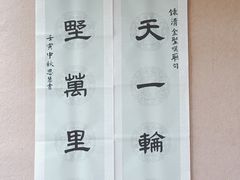 錄清金聖嘆聯句
天一輪
墅萬里
壬寅中秋思慧書